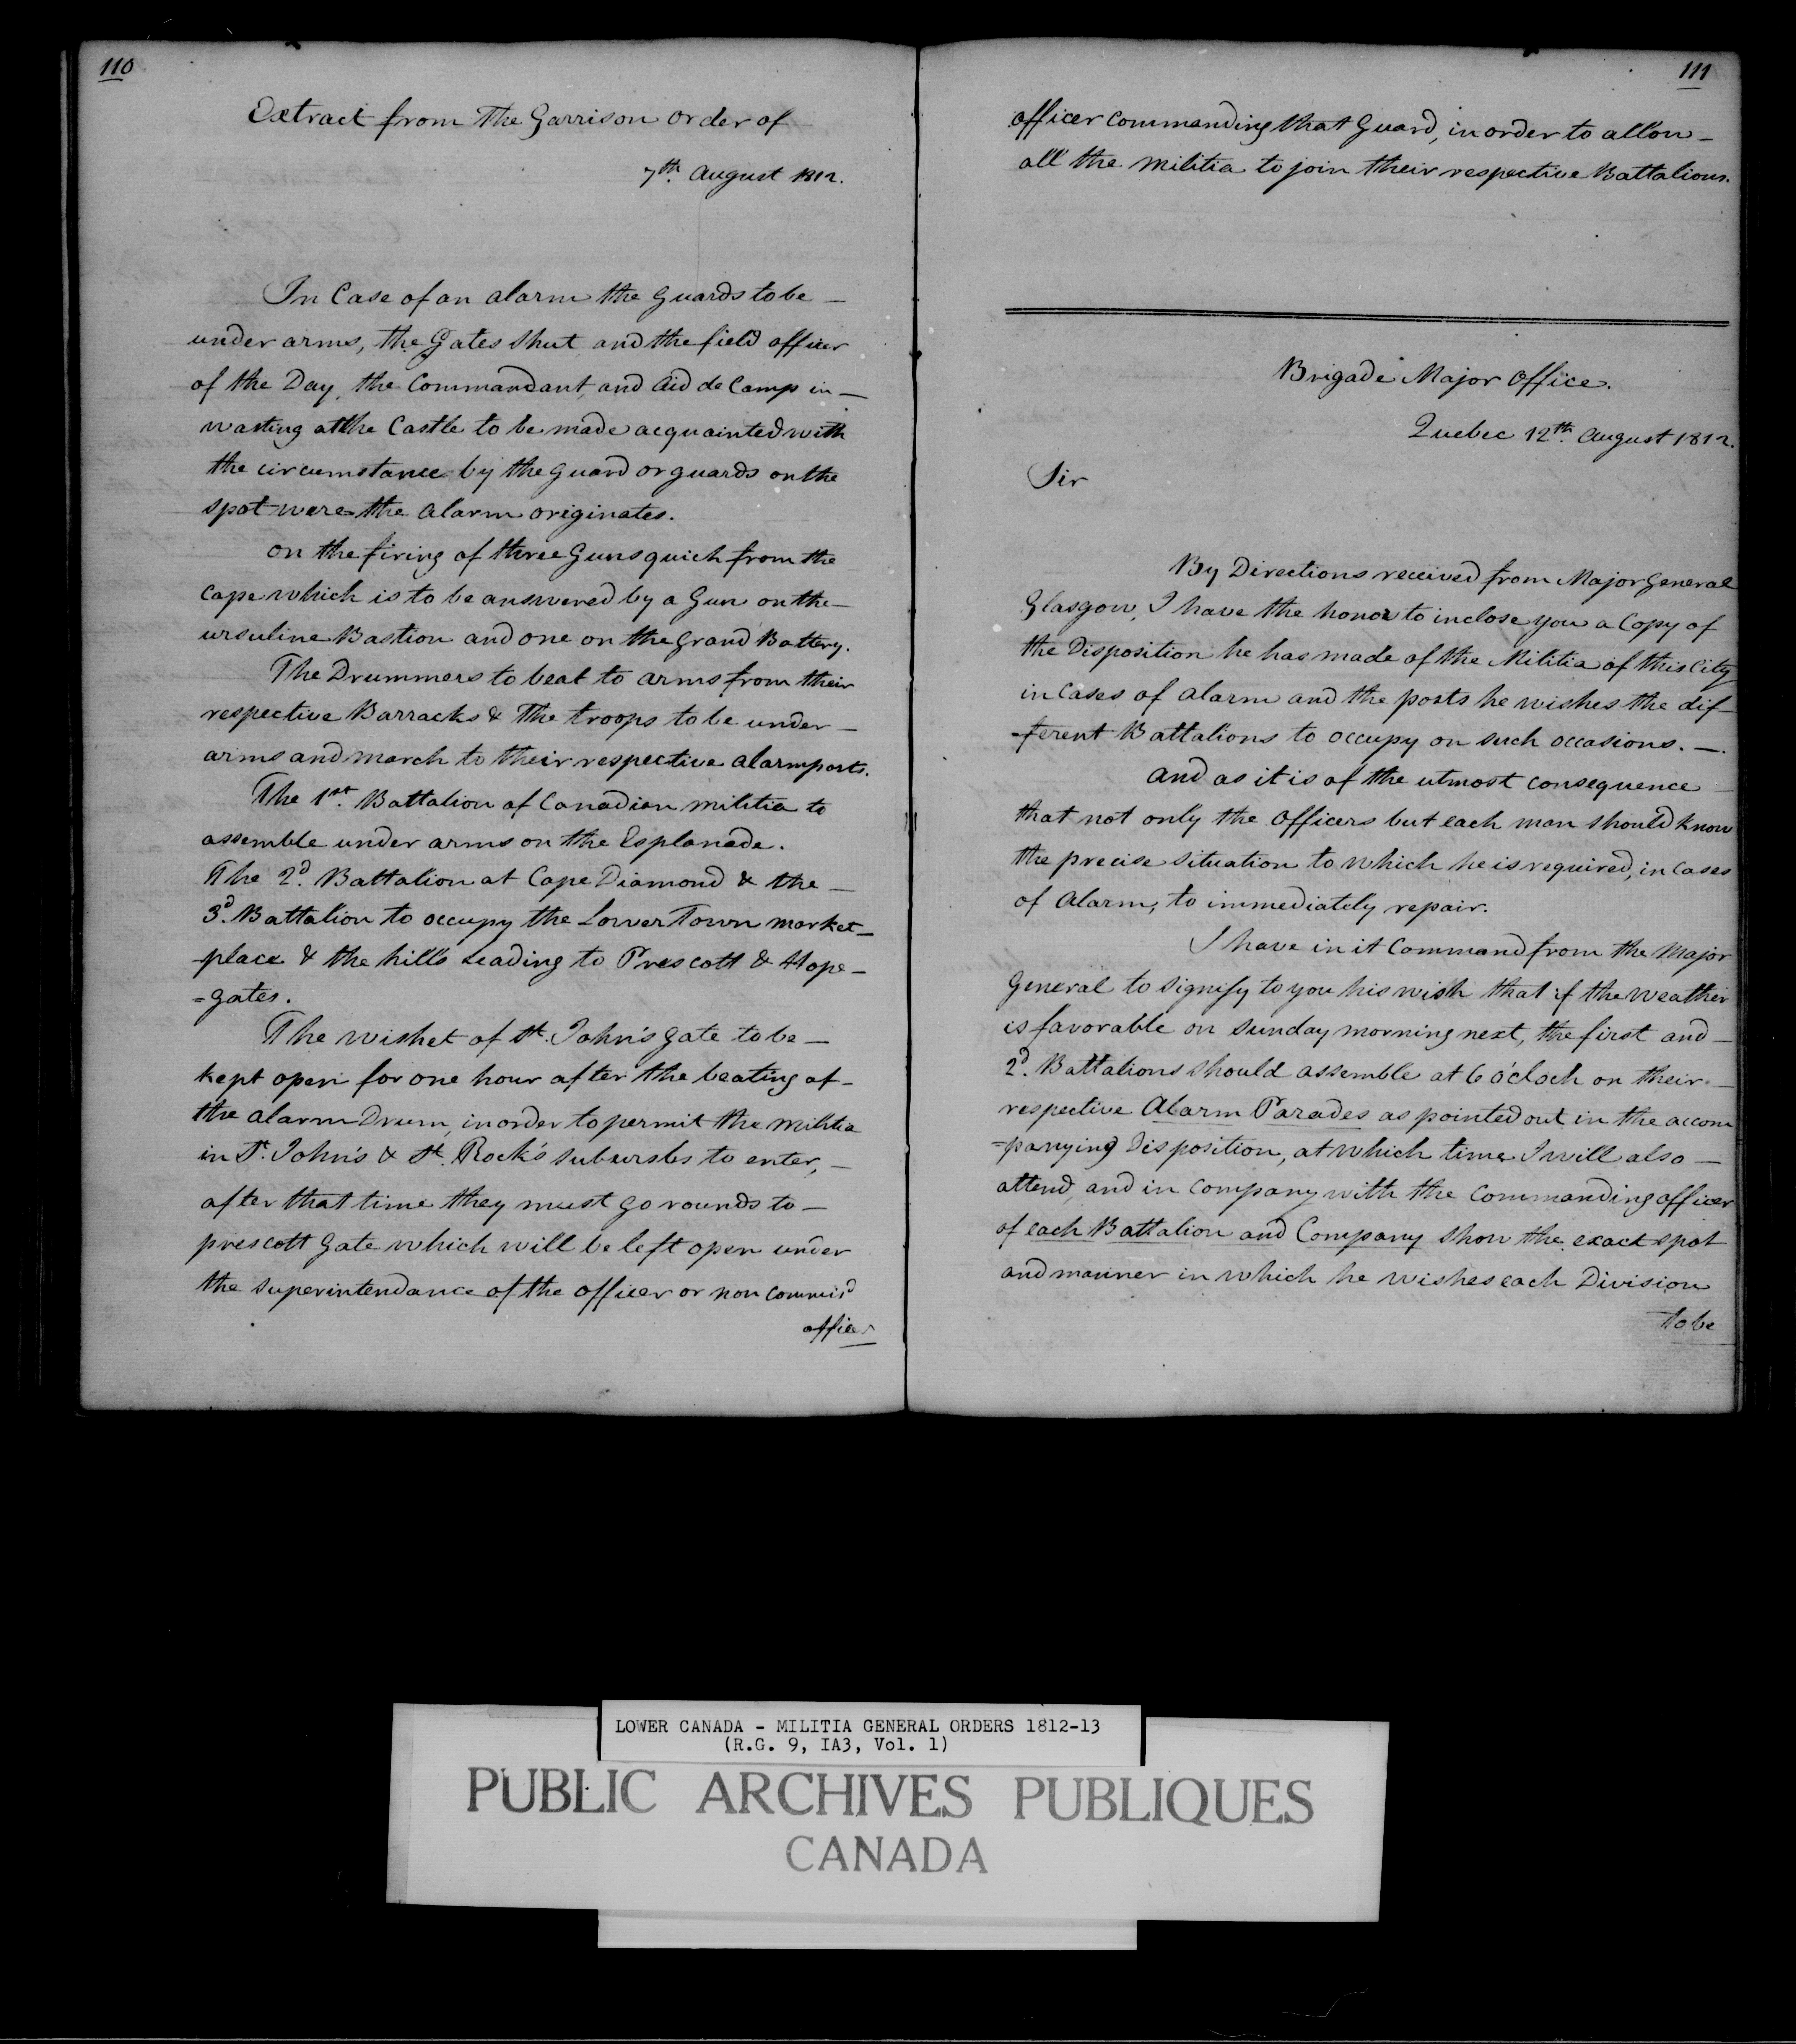 110
Extract from The Garrison order of
7th. August 1812.
In Case of an alarm the Guards to be —
under arms, the Gates Shut and the field officer
of the Day, the Commandant, and Aid de Camp in —
waiting at the Castle to be made acquainted with
the circumstance by the guard or guards on the
spot were the Alarm originates.
on the firing of three Guns quick from the
Cape which is to be answered by a Gun on the —
ursuline Bastion and one on the Grand Battery.
The Drummers to beat to arms from their
respective Barracks & The troops to be under —
arms and march to their respective alarmposts.
The 1st. Battalion of Canadian militia to
assemble under arms on the Esplanade.
The 2d. Battalion at Cape Diamond & the —
3d. Battalion to occupy the Lower Town market —
-place & the hills Leading to Prescott & Hope —
=gates.
The wicket of St. John's Gate to be —
kept open for one hour after the beating of —
the alarm Drum, in order to permit the militia
in St. John's & St. Rock's suburbs to enter, —
after that time they must go rounds to —
prescott Gate which will be left open under
the superintendance of the officer or non Commisd
officer
111
officer commanding that Guard, in order to allow —
all the militia to join their respective Battalions.
Brigade Major Office.
Quebec 12th. August 1812.
Sir
By Directions received from Major General
Glasgow, I have the honor to inclose you a Copy of
the Disposition he has made of the Militia of this City
in Cases of alarm and the posts he wishes the dif-
-ferent Battalions to occupy on such occasions. —.
And as it is of the utmost consequence
that not only the Officers but each man should know
the precise situation to which he is required, in Cases
of Alarm, to immediately repair.
I have in it Command from the Major
General to signify to you his wish that if the weather
is favorable on sunday morning next, the first and —
2d. Battalions should assemble at 6 o'clock on their —
respective Alarm Parades as pointed out in the accom
=panying Disposition, at which time I will also —
attend, and in company with the Commanding officer
of each Battalion and Company show the exact spot
and manner in which he wishes each Division
to be
LOWER CANADA - MILITIA GENERAL ORDERS 1812-13
(R.G. 9, IA3, Vol. 1)
PUBLIC ARCHIVES PUBLIQUES
CANADA